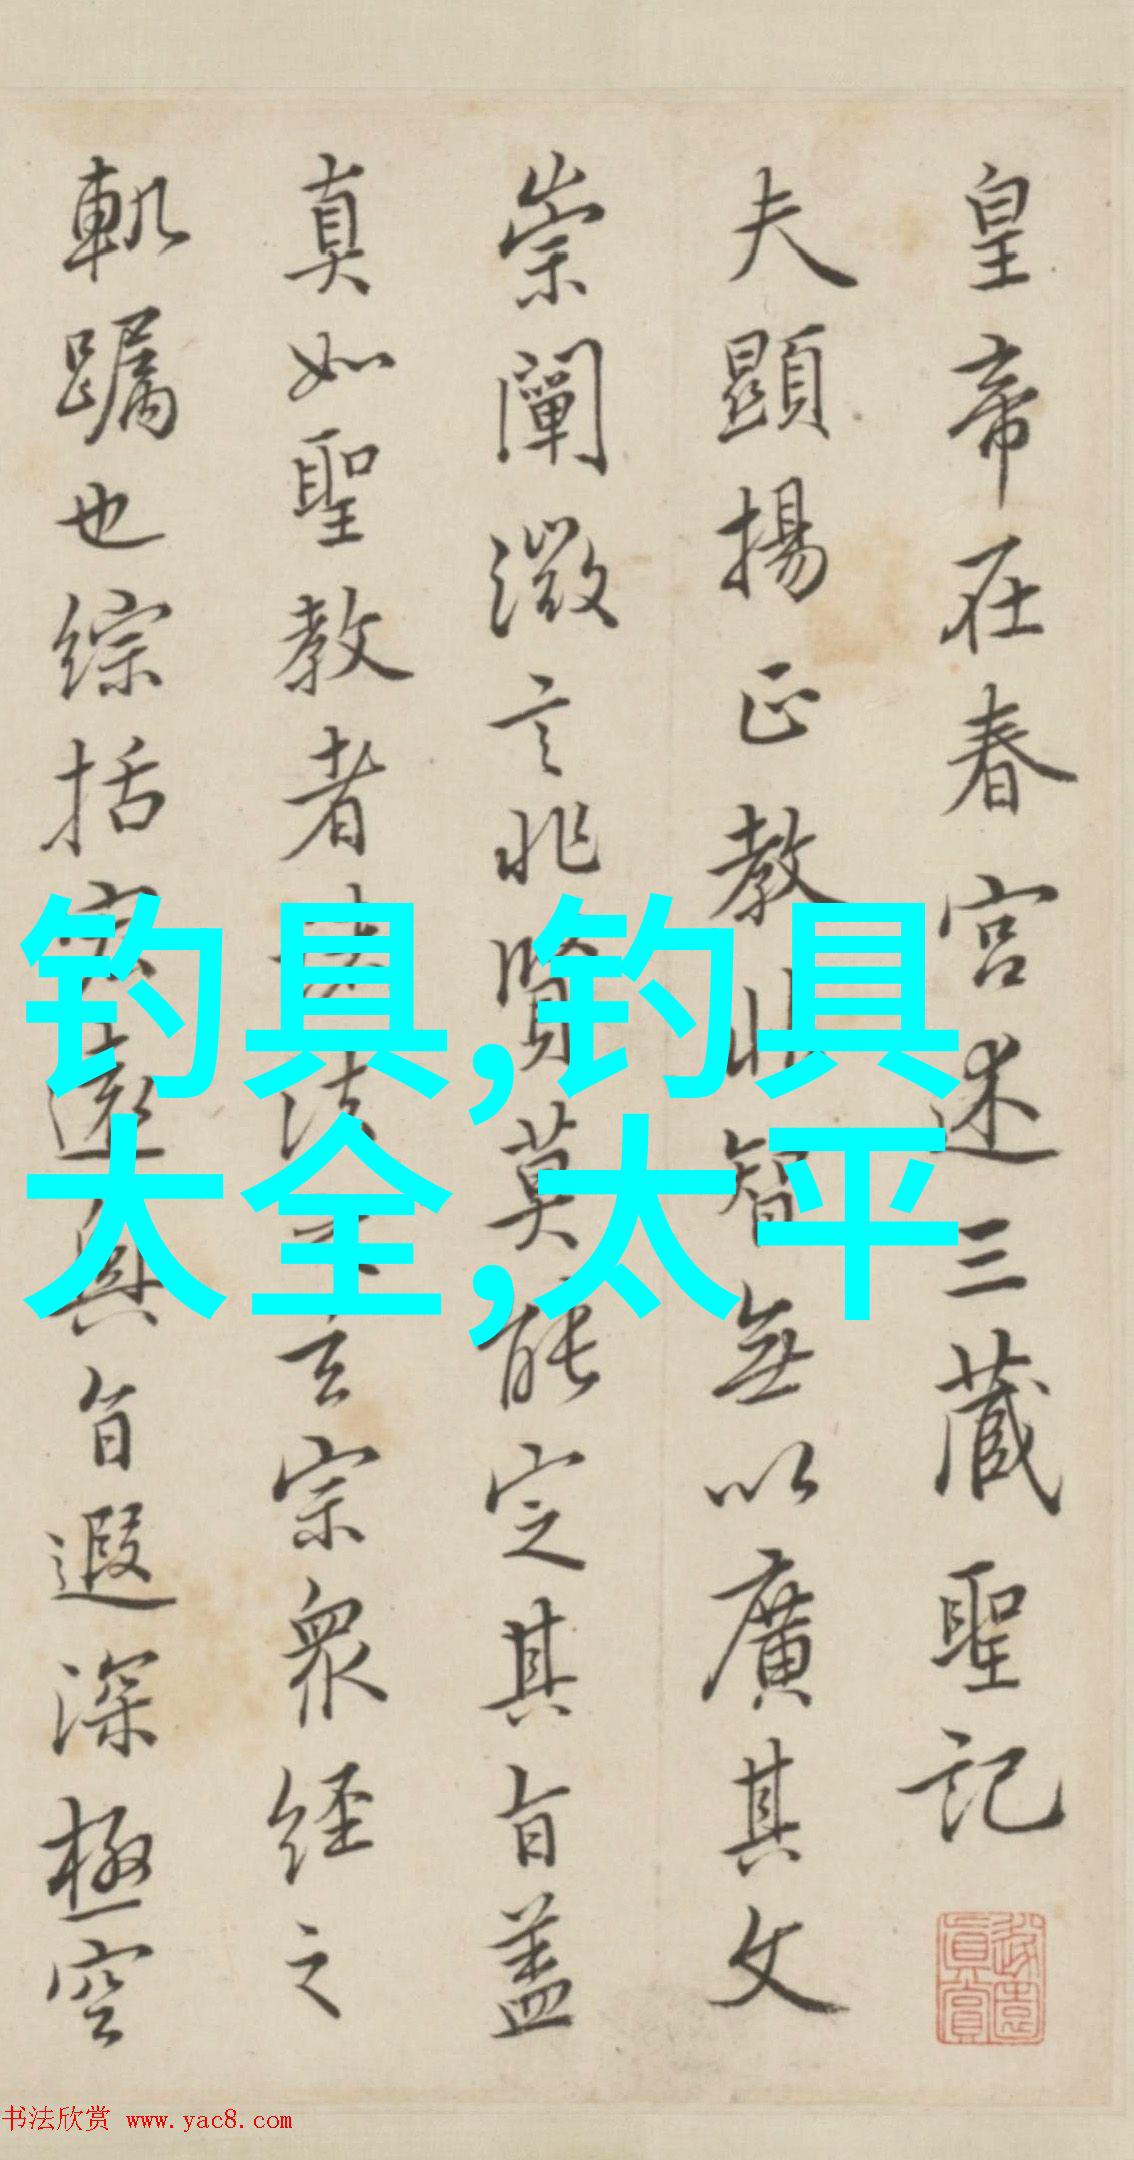 皇帝在春宮述三藏聖記
夫顯揚正教非智無以廣其文
崇闡微言非賢莫能定其旨蓋
真如聖教者諸法之玄宗衆經之
軌躅也綜括宏遠奧旨遐深極空
钓具,钓具
大全,太平
书法欣赏 www.yac8.com